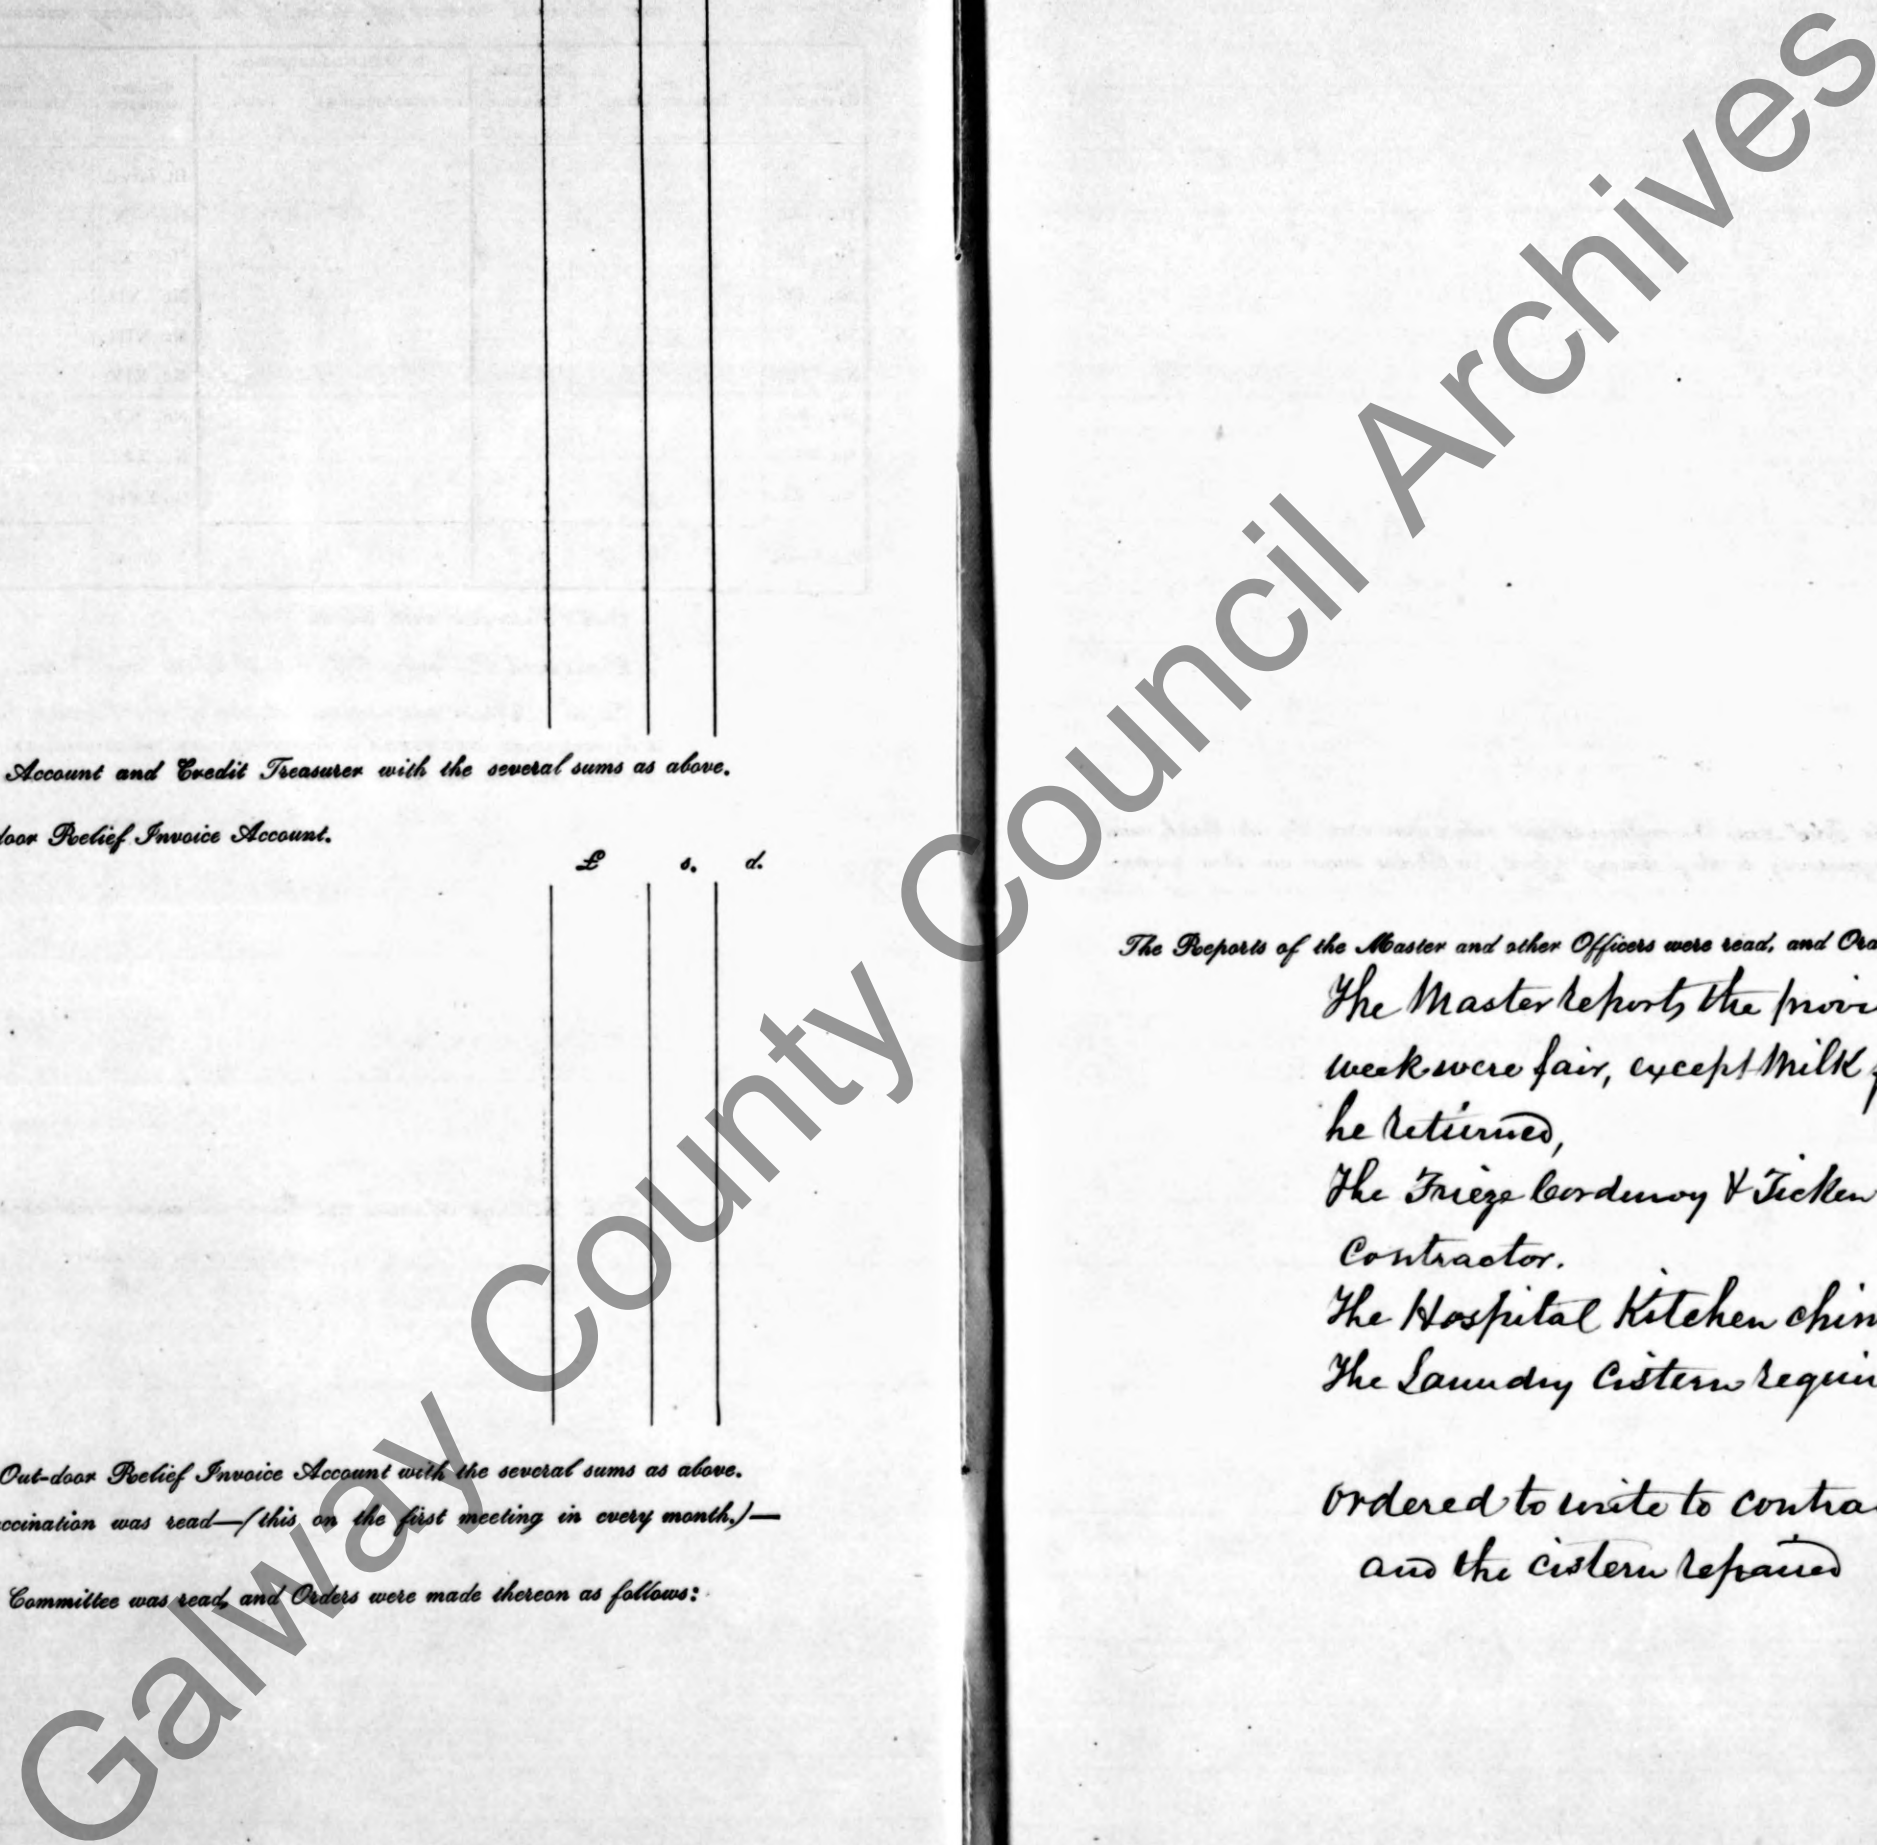 Account and Credit Treasurer with the several sums as above.
door Relief Invoice Account.
£ s. d.
Out-door Relief Invoice Account with the several sums as above.
ccination was read—(this on the first meeting in every month.)—
Committee was read, and Orders were made thereon as follows:
The Reports of the Master and other Officers were read, and Ord
The Master reports the provi
week were fair, except Milk
he returned,
The Frieze Corduroy & Ticken
Contractor.
The Hospital Kitchen chim
The Laundry Cistern requir
Ordered to write to contra
and the cistern repaired
Galway County Council Archives